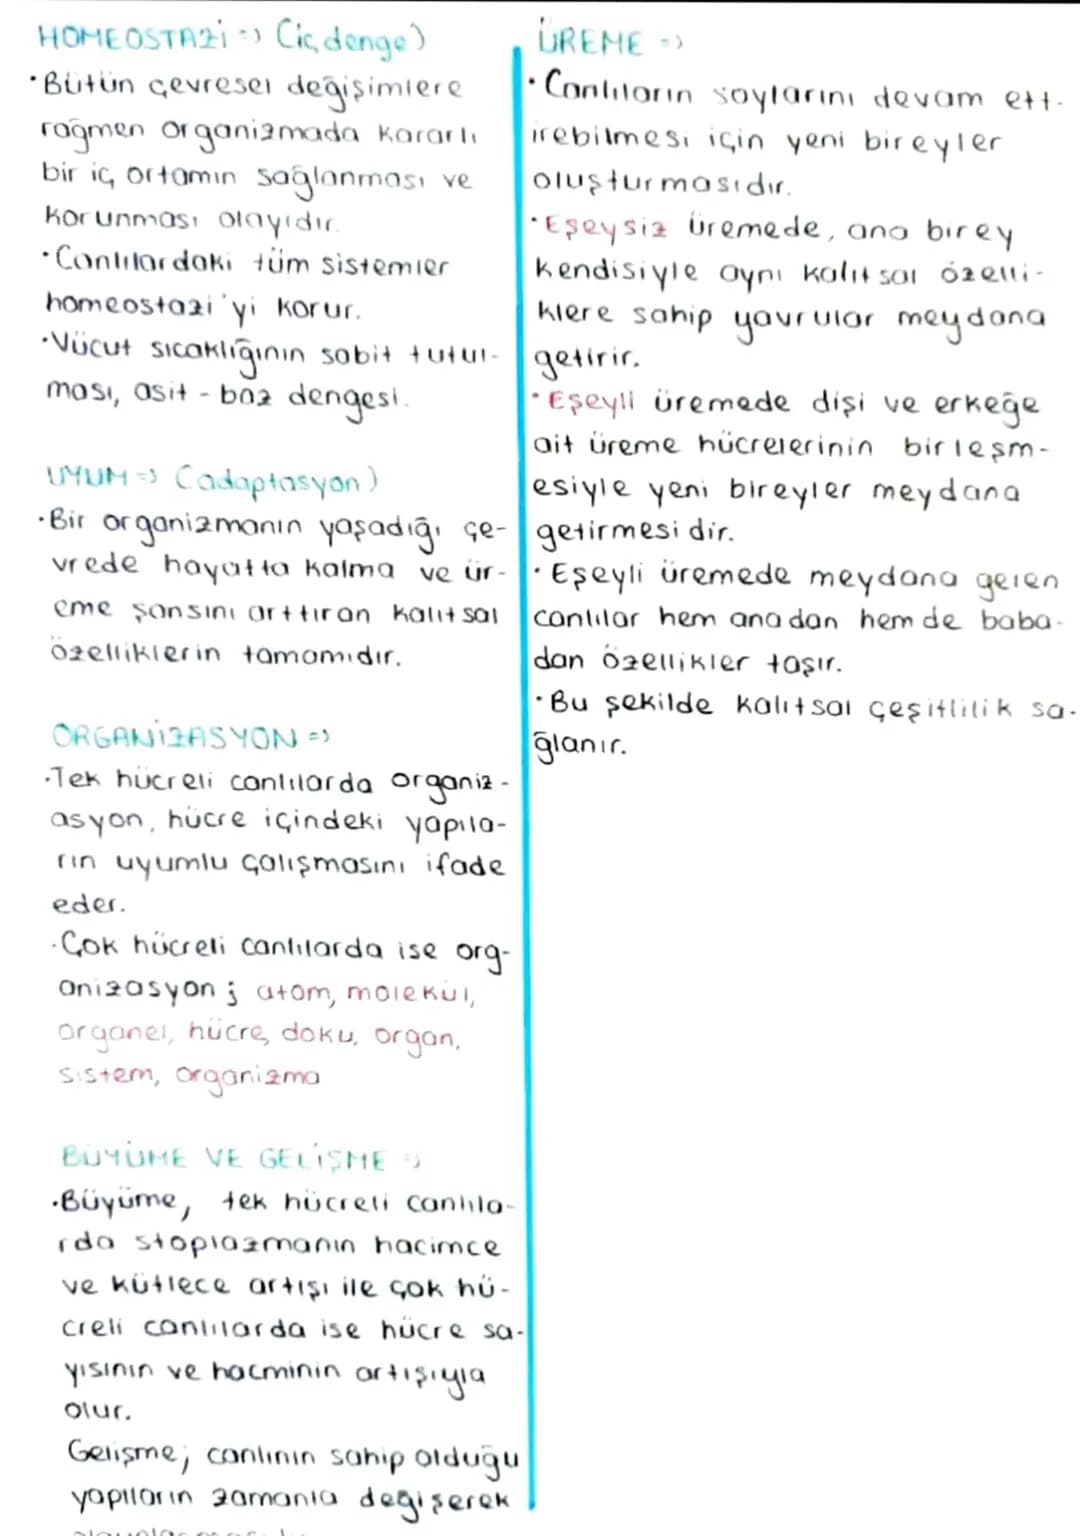 HOMEOSTAZİ => (iç denge)
·Bütün çevresel değişimlere
rağmen organizmada kararlı
bir iç ortamın sağlanması ve
korunması olayıdır.
·Canlılardaki tüm sistemler
homeostazi'yi korur.
·Vücut sıcaklığının sabit tutul-
ması, asit - baz dengesi.
UYUM => (adaptasyon)
·Bir organizmanın yaşadığı çe-
vrede hayatta kalma ve ür-
eme şansını arttıran kalıtsal
özelliklerin tamamıdır.
ORGANİZASYON =>
·Tek hücreli canlılarda organiz-
asyon, hücre içindeki yapıla-
rın uyumlu çalışmasını ifade
eder.
·Çok hücreli canlılarda ise org-
anizasyon; atom, molekül,
organel, hücre, doku, organ,
sistem, organizma
BÜYÜME VE GELİŞME =>
·Büyüme, tek hücreli canlıla-
rda stoplazmanın hacimce
ve kütlece artışı ile çok hü-
creli canlılarda ise hücre sa-
yısının ve hacminin artışıyla
olur.
Gelişme; canlının sahip olduğu
yapıların zamanla değişerek
ÜREME =>
·Canlıların soylarını devam ett-
irebilmesi için yeni bireyler
oluşturmasıdır.
·Eşeysiz üremede, ana birey
kendisiyle aynı kalıtsal özelli-
klere sahip yavrular meydana
getirir.
·Eşeyli üremede dişi ve erkeğe
ait üreme hücrelerinin birleşm-
esiyle yeni bireyler meydana
getirmesidir.
·Eşeyli üremede meydana gelen
canlılar hem anadan hem de baba-
dan özellikler taşır.
·Bu şekilde kalıtsal çeşitlilik sa-
ğlanır.